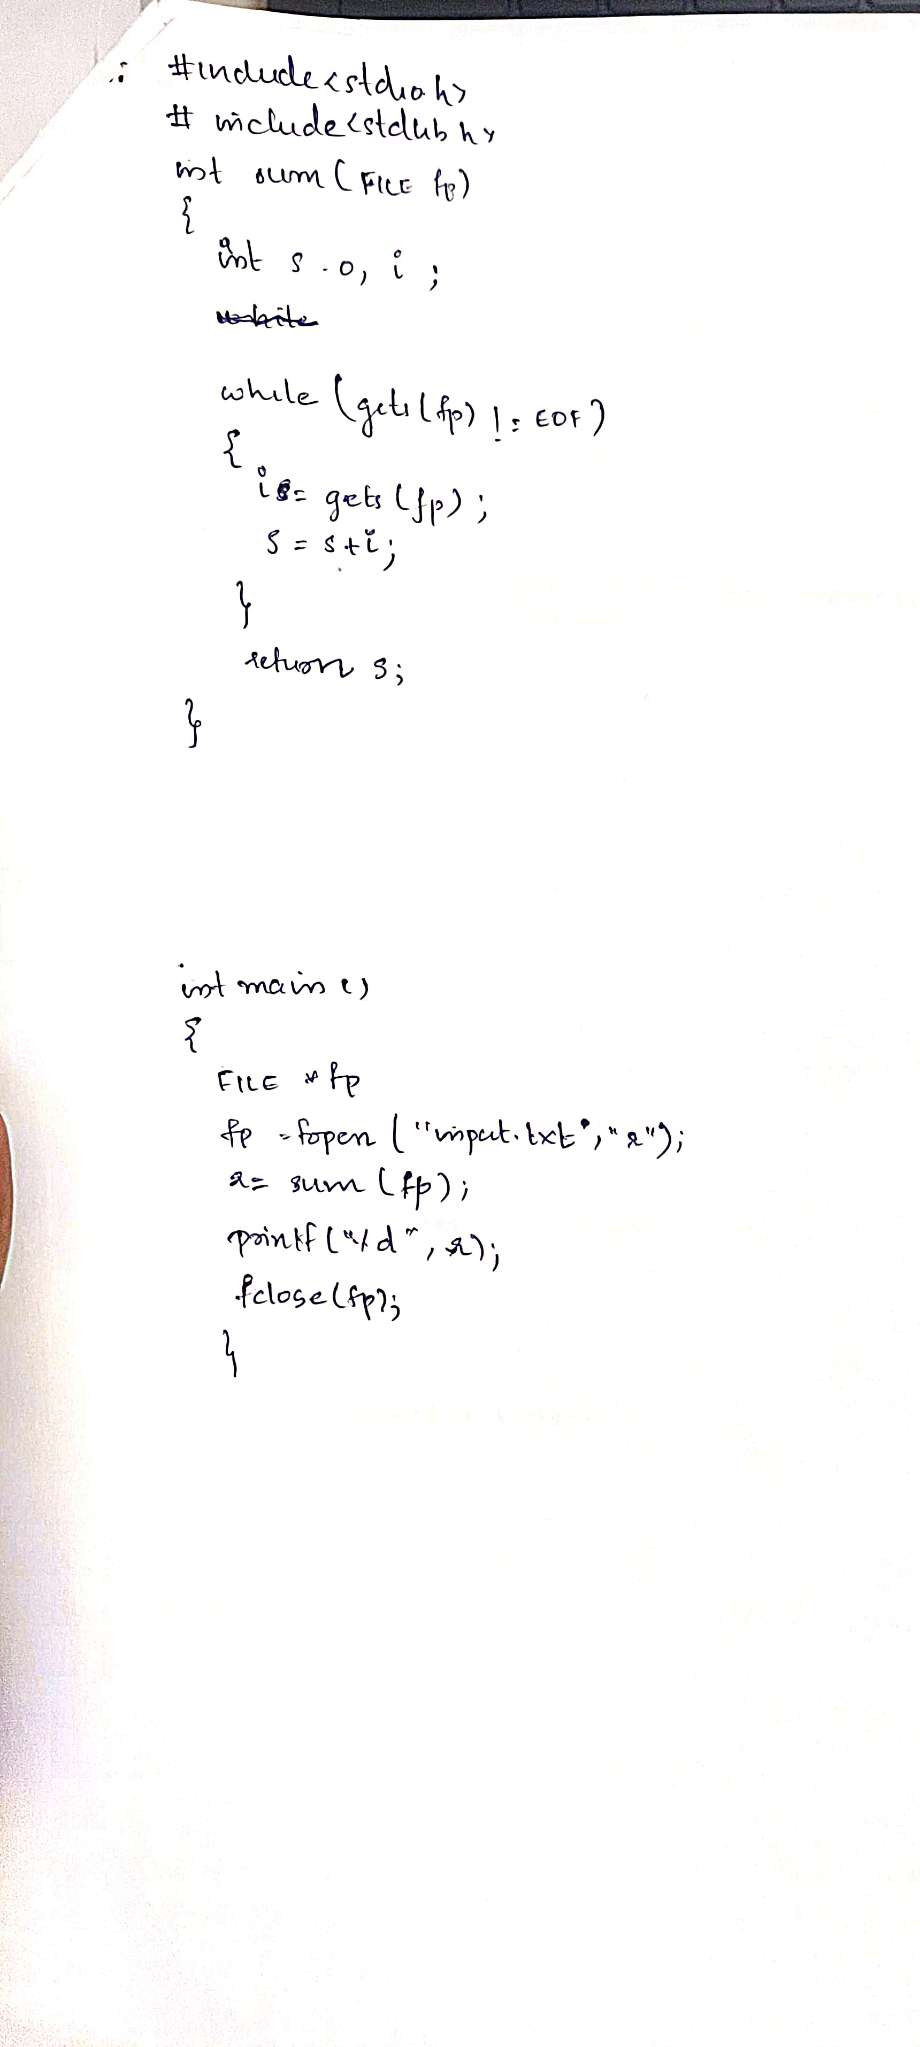 #include<stdio.h>
# include<stdlib.h>
int sum (FILE fp)
{
int s = 0, i ;
while
while (gets(fp) != EOF)
{
i = gets (fp) ;
s = s+i;
}
return s;
}
int main ()
{
FILE * fp
fp = fopen ("input.txt", "r");
r= sum (fp);
printf ("%d", r);
fclose(fp);
}